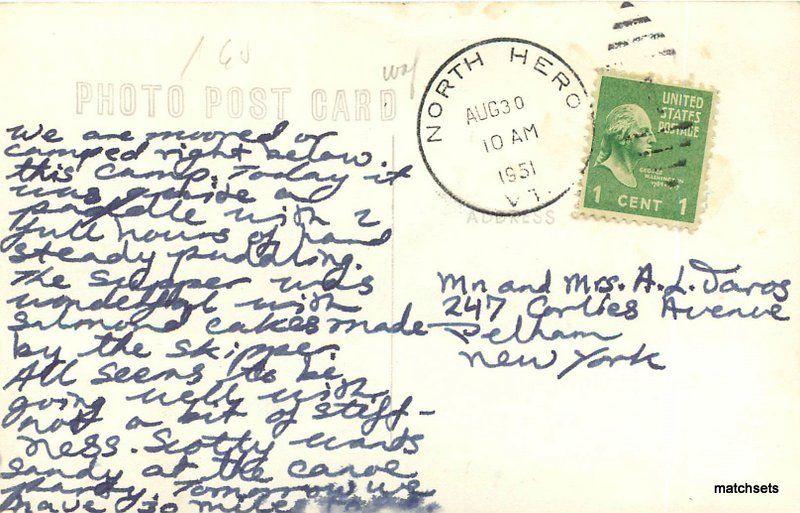 PHOTO POST CARD
ADDRESS
NORTH HERO
AUG 30
10 AM
1951
VT.
UNITED
STATES
POSTAGE
GEORGE
WASHINGTON
1 CENT 1
We are moored or
camped right below
this camp. Today it
was quite a
paddle with 2
full hours of hard
steady puddling.
The supper was
wonderful with
salmond cakes made
by the skipper.
All seems to be
going well with
not a bit of stiff-
ness. Scotty wants
sandy at the canoe
party. Tomorrow we
have 30 miles to
Mr and Mrs. A. L. Davos
247 Corlies Avenue
Pelham
New York
matchsets